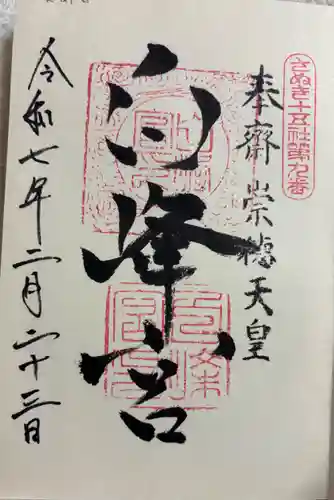 さぬき十五社第九番
奉齋崇徳天皇
白峰宮
令和七年二月二十三日